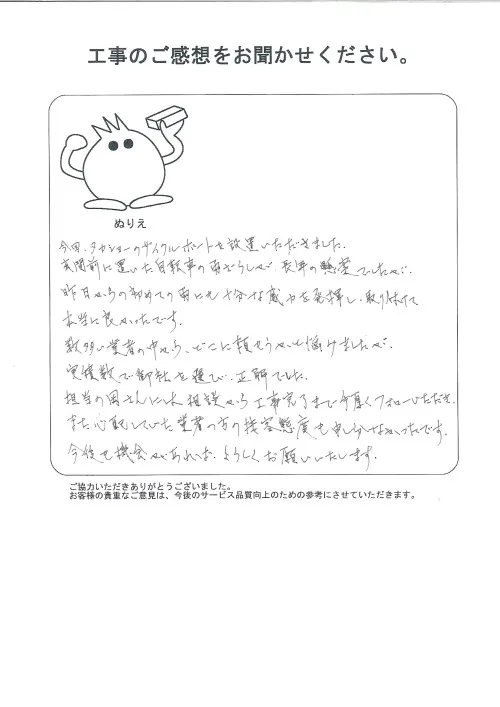 工事のご感想をお聞かせください。
ぬりえ
今回、タカショーのサイクルポートを設置いただきました。
玄関前に置いた自転車の雨ざらしが、長年の懸案でしたが、
昨日からの初めての雨にも十分な威力を発揮し、取り付けて
本当に良かったです。
数多い業者の中から、どこに頼もうかと悩みましたが、
実績数で御社を選び、正解でした。
担当の岡さんには相談から工事完了まで手厚くフォローいただき、
また心配していた業者の方の接客態度も申し分なかったです。
今後も機会があれば、よろしくお願いいたします。
ご協力いただきありがとうございました。
お客様の貴重なご意見は、今後のサービス品質向上のための参考にさせていただきます。